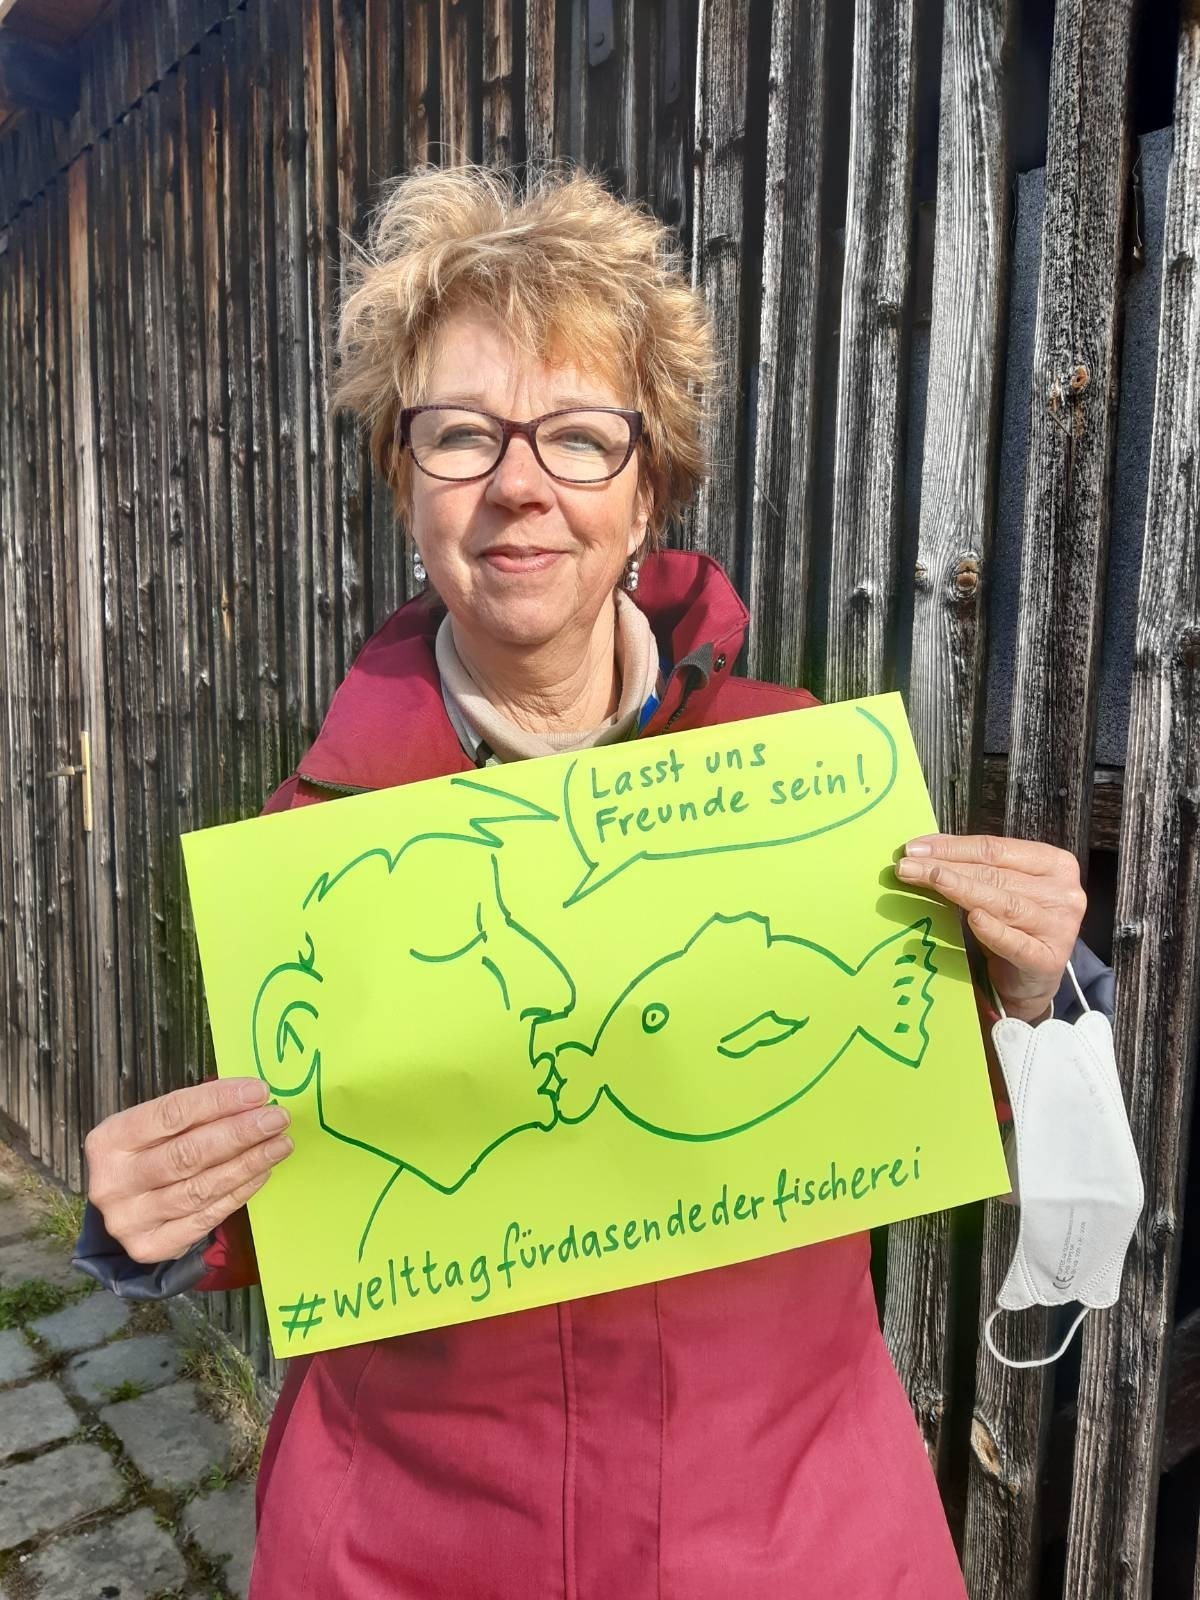 Lasst uns
Freunde sein!
#welttagfürdasendederfischerei